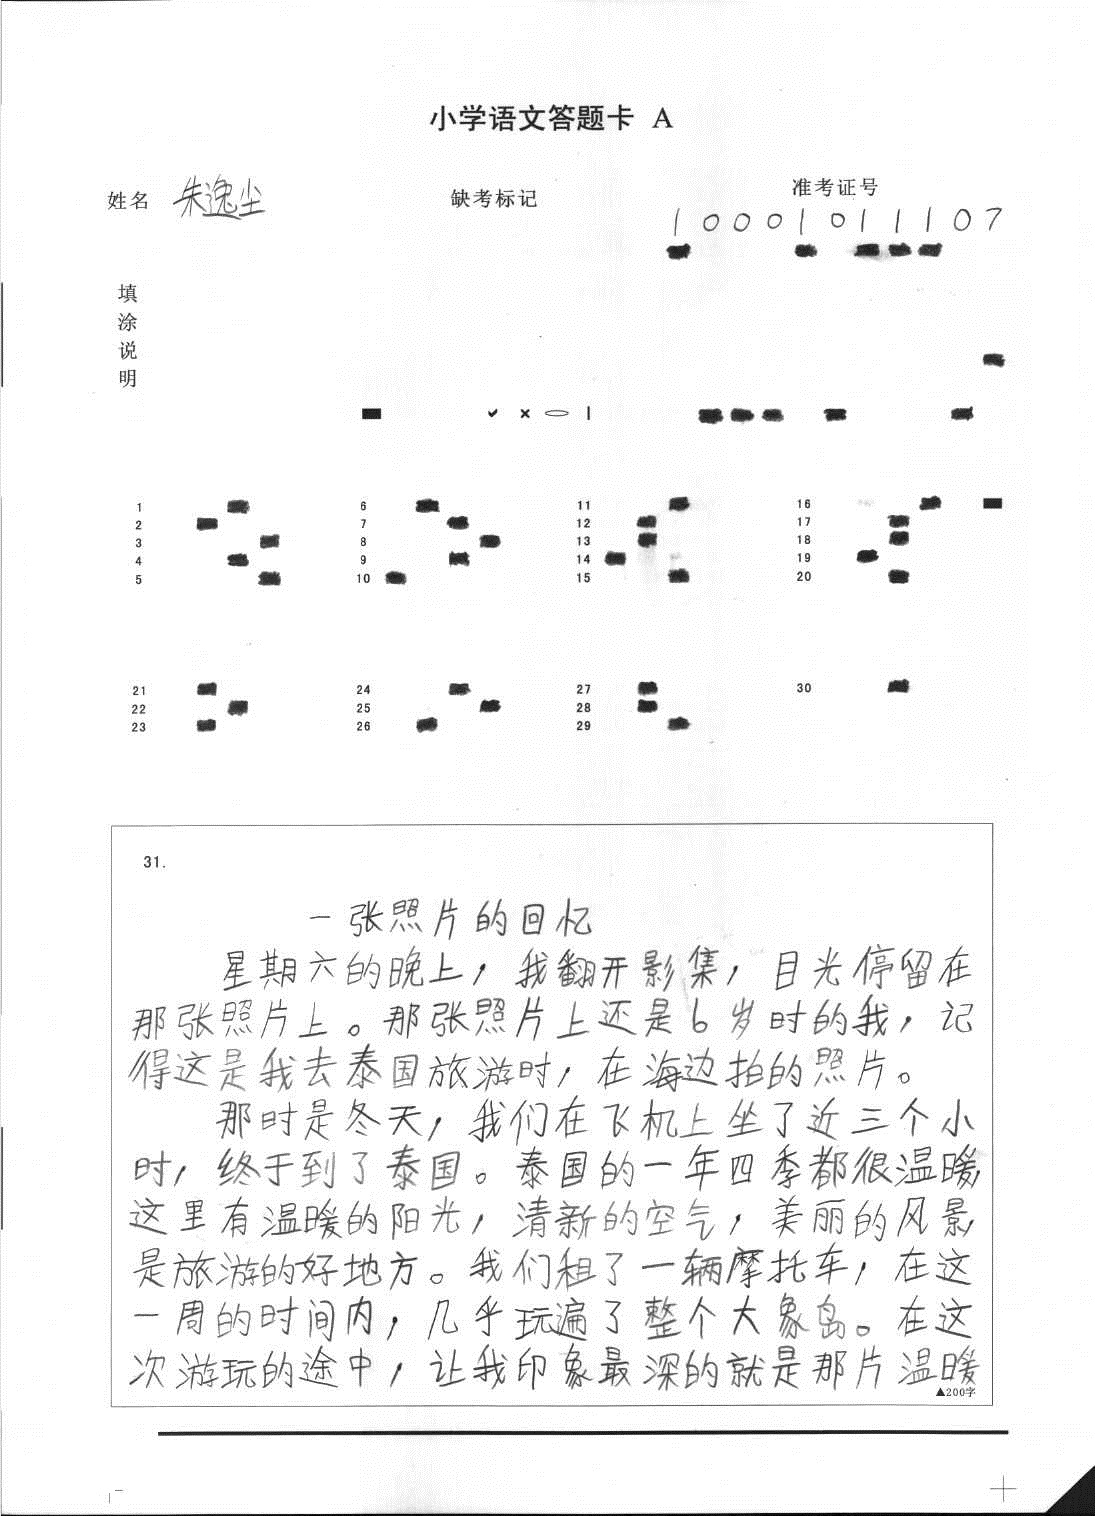 小学语文答题卡 A
姓名 朱逸尘 缺考标记 准考证号
1 0 0 0 1 0 1 1 1 0 7
填
涂
说
明
1 6 11 16
2 7 12 17
3 8 13 18
4 9 14 19
5 10 15 20
21 24 27 30
22 25 28
23 26 29
31.
一张照片的回忆
星期六的晚上，我翻开影集，目光停留在
那张照片上。那张照片上还是6岁时的我，记
得这是我去泰国旅游时，在海边拍的照片。
那时是冬天，我们在飞机上坐了近三个小
时，终于到了泰国。泰国的一年四季都很温暖，
这里有温暖的阳光，清新的空气，美丽的风景，
是旅游的好地方。我们租了一辆摩托车，在这
一周的时间内，几乎玩遍了整个大象岛。在这
次游玩的途中，让我印象最深的就是那片温暖
▲200字